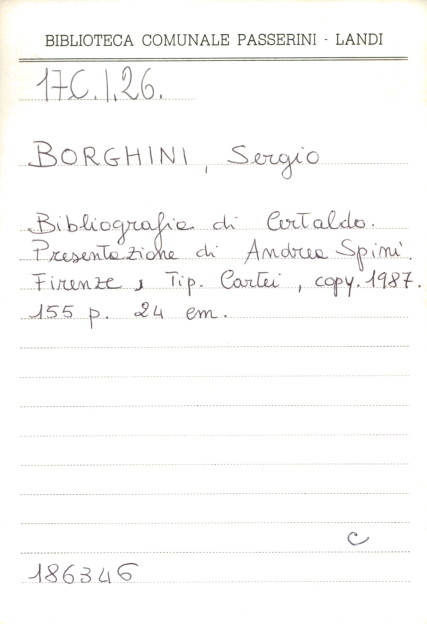 BIBLIOTECA COMUNALE PASSERINI - LANDI
17C.I.26.
BORGHINI, Sergio
Bibliografia di Certaldo.
Presentazione di Andrea Spini.
Firenze, Tip. Cartei, copy. 1987.
155 p. 24 cm.
C
186346